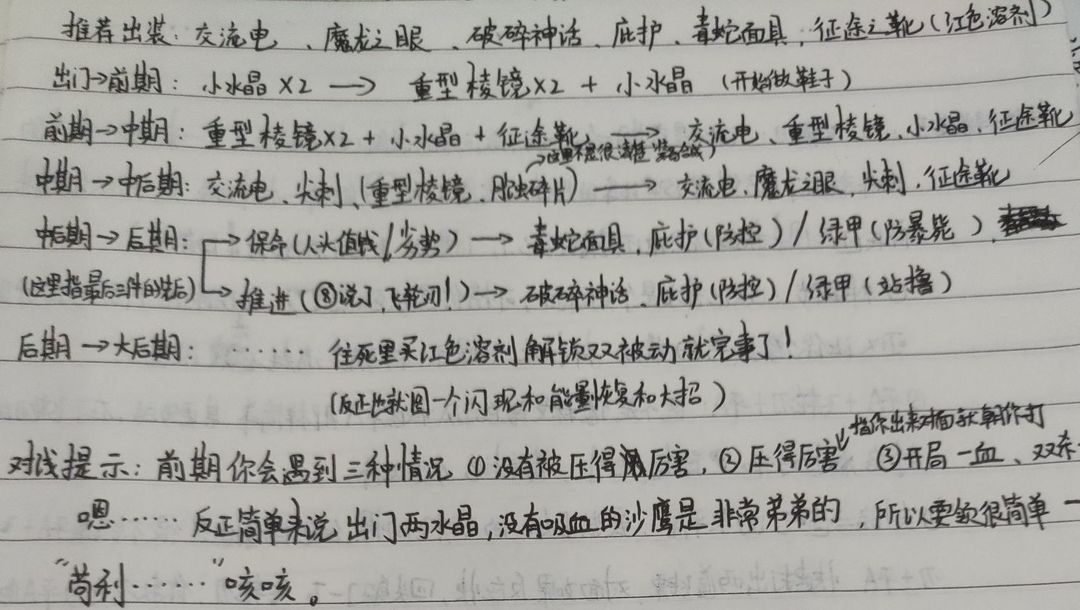 推荐出装：交流电、魔龙之眼、破碎神话、庇护、毒蛇面具，征途之靴（红色溶剂）
出门→前期：小水晶×2 → 重型棱镜×2 + 小水晶（开始做鞋子）
前期→中期：重型棱镜×2 + 小水晶 + 征途靴 → 交流电、重型棱镜、小水晶、征途靴
→这里不是很清楚 装备合成）
中期→中后期：交流电、尖刺、（重型棱镜、碎片）→ 交流电、魔龙之眼、尖刺、征途靴
中后期→后期：→保命（人头值钱/劣势）→ 毒蛇面具、庇护（防控）/绿甲（防暴毙）、
（这里指最后三件的先后）→推进（⑧说了，飞轮刃！）→ 破碎神话、庇护（防控）/绿甲（站撸）
后期→大后期：…… 往死里买红色溶剂 解锁双被动就完事了！
（反正也就图一个闪现和能量恢复和大招）
指你出来对面就朝你打
对线提示：前期你会遇到三种情况 ①没有被压得厉害，②压得厉害 ③开局一血、双杀
嗯…… 反正简单来说 出门两水晶，没有吸血的沙鹰是非常弟弟的，所以要 很简单一
“苟利……”咳咳。